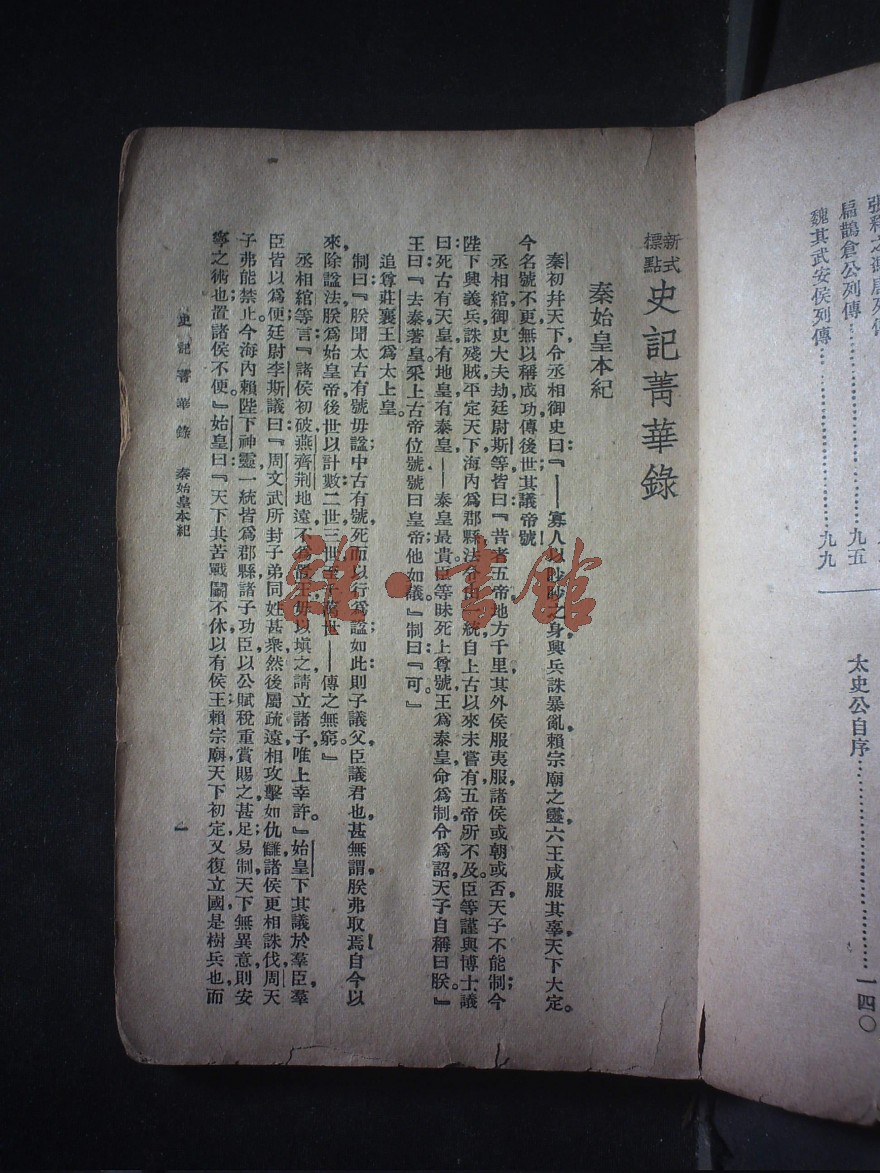 張釋之馮唐列傳
扁鵲倉公列傳……………………九五
魏其武安侯列傳……………………九九
太史公自序……………………一四〇
新式標點 史記菁華錄
秦始皇本紀
秦初幷天下，令丞相御史曰：『——寡人以眇眇之身，興兵誅暴亂，賴宗廟之靈，六王咸服其辜，天下大定。
今名號不更，無以稱成功，傳後世；其議帝號！
丞相綰御史大夫劫廷尉斯等皆曰：『昔者五帝地方千里，其外侯服夷服，諸侯或朝或否，天子不能制；今
陛下興義兵，誅殘賊，平定天下，海內爲郡縣，法令由一統，自上古以來未嘗有，五帝所不及。臣等謹與博士議
曰：死古有天皇，有地皇，有泰皇——泰皇最貴。臣等昧死上尊號，王爲泰皇，命爲制，令爲詔，天子自稱曰朕。』
王曰：『去泰著皇，采上古帝位號，號曰皇帝，他如議。』制曰：『可。』
追尊莊襄王爲太上皇。
制曰：『朕聞太古有號毋諡；中古有號，死而以行爲諡；如此則子議父，臣議君也，甚無謂，朕弗取焉！自今以
來，除諡法，朕爲始皇帝，後世以計數，二世三世至于萬世——傳之無窮。』
丞相綰等言：『諸侯初破，燕齊荆地遠，不爲置王，毋以塡之，請立諸子，唯上幸許。』始皇下其議於羣臣，羣
臣皆以爲便。廷尉李斯議曰：『周文武所封子弟同姓甚衆，然後屬疏遠，相攻擊如仇讎，諸侯更相誅伐，周天
子弗能禁止。今海內賴陛下神靈一統，皆爲郡縣，諸子功臣以公賦稅重賞賜之，甚足易制；天下無異意，則安
寧之術也；置諸侯不便。』始皇曰：『天下共苦戰鬭不休，以有侯王，賴宗廟天下初定，又復立國，是樹兵也；而
史記菁華錄 秦始皇本紀 一
雜·書館